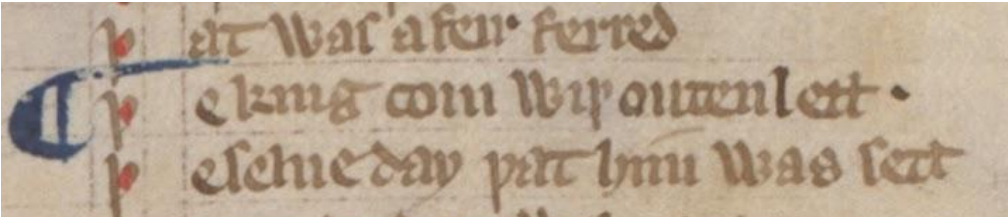 þ at was a feir ferred
¶ þ e king com wiþ outen lett ·
þ e selue day þat him was sett